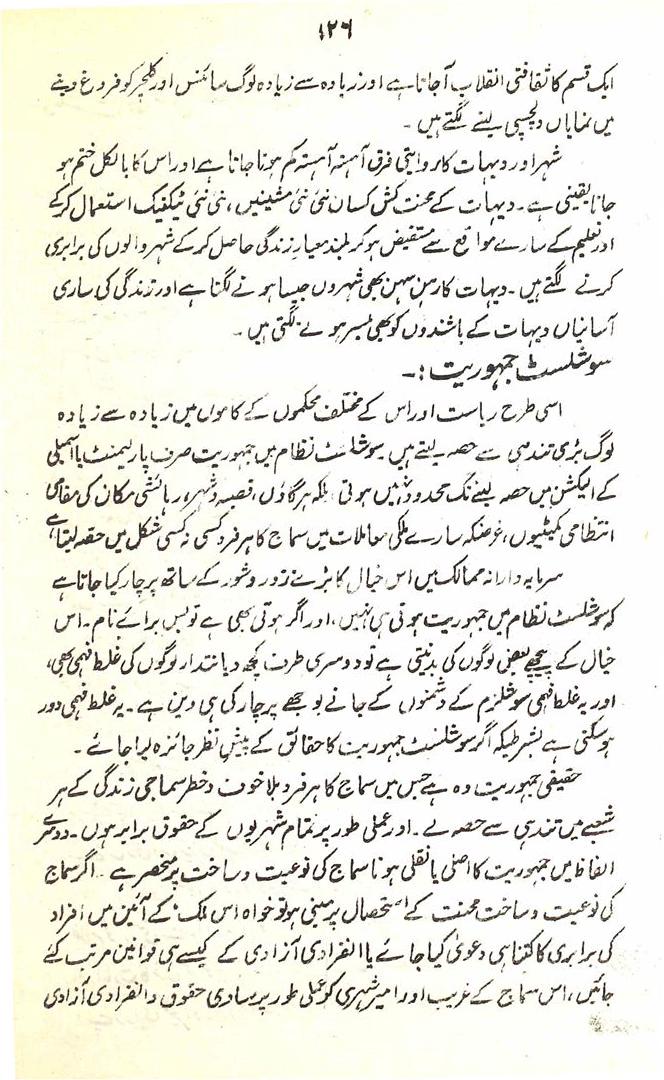 ۱۲۶
ایک قسم کا ثقافتی انقلاب آجاتا ہے اور زیادہ سے زیادہ لوگ سائنس اور کلچر کو فروغ دینے
میں نمایاں دلچسپی لینے لگتے ہیں ۔
شہر اور دیہات کا روایتی فرق آہستہ آہستہ کم ہوتا جاتا ہے اور اس کا بالکل ختم ہو
جانا یقینی ہے ۔ دیہات کے محنت کش کسان نئی نئی مشینیں ، نئی نئی ٹیکنیک استعمال کرکے
اور تعلیم کے سارے مواقع سے مستفیض ہو کر بلند معیار زندگی حاصل کرکے شہر والوں کی برابری
کرنے لگتے ہیں ۔ دیہات کا رہن سہن بھی شہروں جیسا ہونے لگتا ہے اور زندگی کی ساری
آسانیاں دیہات کے باشندوں کو بھی میسر ہونے لگتی ہیں ۔
سوشلسٹ جمہوریت :۔
اسی طرح ریاست اور اس کے مختلف محکموں کے کاموں میں زیادہ سے زیادہ
لوگ بڑی تندہی سے حصہ لیتے ہیں ۔ سوشلسٹ نظام میں جمہوریت صرف پارلیمنٹ یا اسمبلی
کے الیکشن میں حصہ لینے تک محدود نہیں ہوتی بلکہ ہر گاؤں ، قصبہ و شہر ، رہائشی مکان کی مقامی
انتظامی کمیٹیوں ، غرضکہ سارے ملکی معاملات میں سماج کا ہر فرد کسی نہ کسی شکل میں حصہ لیتا ہے
سرمایہ دارانہ ممالک میں اس خیال کا بڑے زور و شور کے ساتھ پرچار کیا جاتا ہے
کہ سوشلسٹ نظام میں جمہوریت ہوتی ہی نہیں ، اور اگر ہوتی بھی ہے تو بس برائے نام ۔ اس
خیال کے پیچھے بعض لوگوں کی بدنیتی ہے تو دوسری طرف کچھ دیانتدار لوگوں کی غلط فہمی بھی ،
اور یہ غلط فہمی سوشلزم کے دشمنوں کے جانے بوجھے پرچار کی ہی دین ہے ۔ یہ غلط فہمی دور
ہو سکتی ہے بشرطیکہ اگر سوشلسٹ جمہوریت کا حقائق کے پیش نظر جائزہ لیا جائے ۔
حقیقی جمہوریت وہ ہے جس میں سماج کا ہر فرد بلا خوف و خطر سماجی زندگی کے ہر
شعبے میں تندہی سے حصہ لے ۔ اور عملی طور پر تمام شہریوں کے حقوق برابر ہوں ۔ دوسرے
الفاظ میں جمہوریت کا اصلی یا نقلی ہونا سماج کی نوعیت و ساخت پر منحصر ہے ۔ اگر سماج
کی نوعیت و ساخت محنت کے استحصال پر مبنی ہو تو خواہ اس ملک کے آئین میں افراد
کی برابری کا کتنا ہی دعویٰ کیا جائے یا انفرادی آزادی کے کیسے ہی قوانین مرتب کئے
جائیں ، اس سماج کے غریب اور امیر شہری کو عملی طور پر مساوی حقوق و انفرادی آزادی